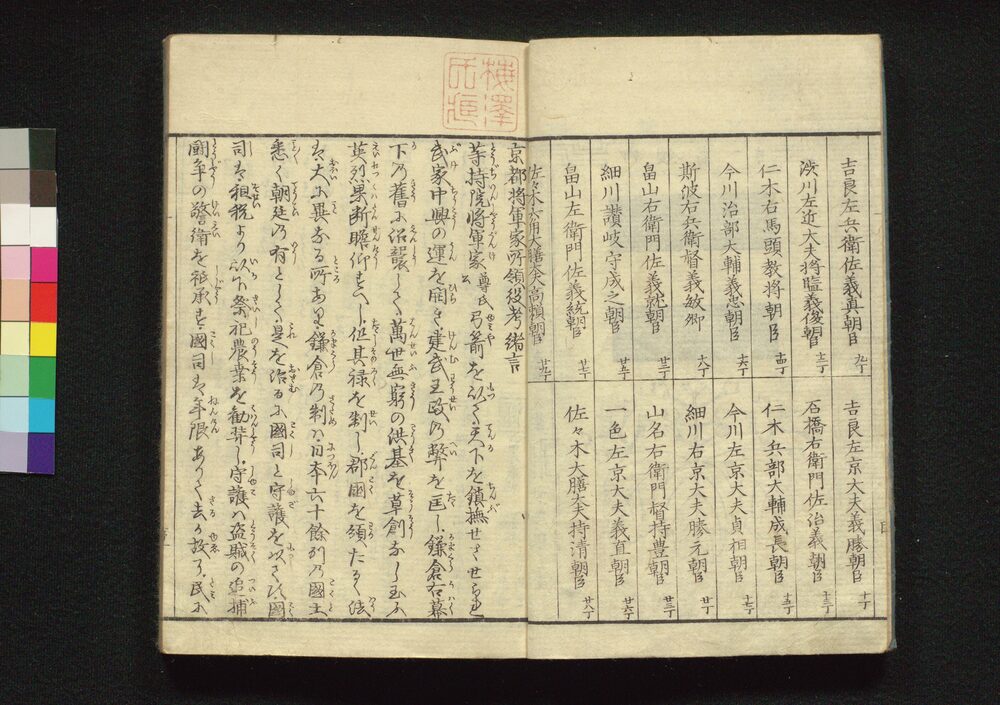 吉良左兵衛佐義真朝臣 九丁
吉良左京大夫義勝朝臣 十丁
渋川左近大夫将監義俊朝臣 十二丁
石橋右衛門佐治義朝臣 十三丁
仁木右馬頭教将朝臣 十四丁
仁木兵部大輔成長朝臣 十五丁
今川治部大輔義忠朝臣 十六丁
今川左京大夫貞相朝臣 十七丁
斯波右兵衛督義敏卿 十八丁
細川右京大夫勝元朝臣 廿丁
畠山右衛門佐義就朝臣 廿二丁
山名右衛門督持豊朝臣
細川讃岐守成之朝臣
一色左京大夫義直朝臣 廿六丁
畠山左衛門佐義統朝臣 廿七丁
佐々木大膳大夫持清朝臣 廿八丁
佐々木六角大膳大夫高頼朝臣 廿九丁
梅澤
京都将軍家所領役考緒言
等持院将軍家尊氏公弓箭を以て天下を鎮撫せさせられ
武家中興の運を開き建武王政の弊を匡し鎌倉右幕
下の舊に沿襲して萬世無窮の洪基を草創なし玉ふ
英烈果断瞻仰すへし但其禄を制し郡國を領たるゝ法
は大に異なる所あり鎌倉の制は日本六十餘列の國土
悉く朝廷の有として是を治るに國司と守護を以てす國
司は租税より以下祭祀農業を勧奨し守護は盗賊の追捕
國中の警衛を祗承す國司は年限ありて去る故に民に